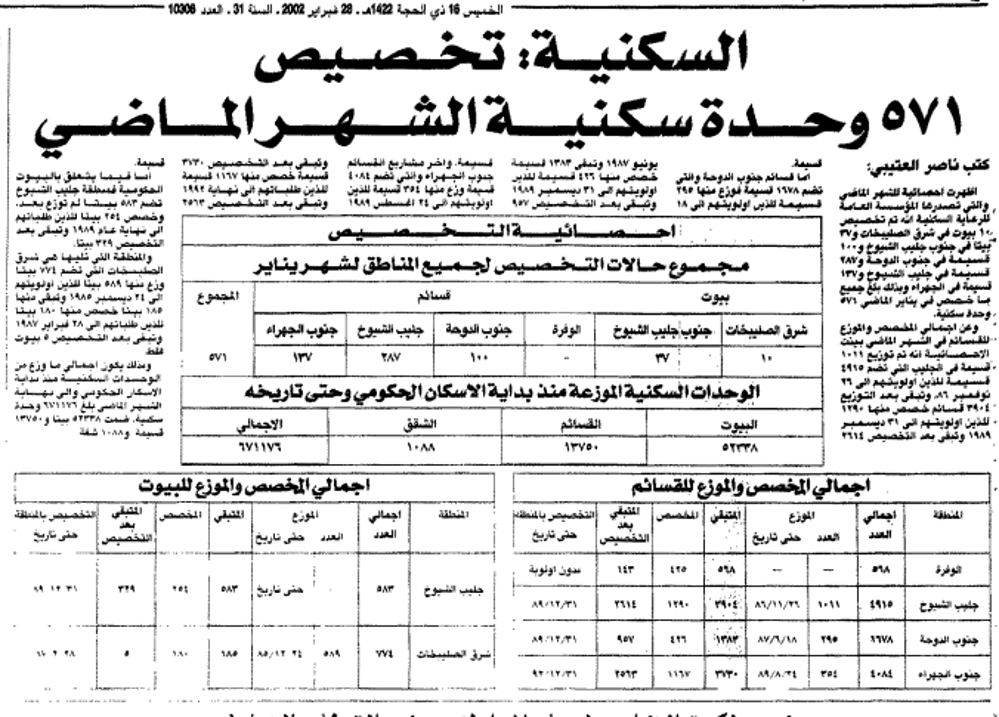 الخميس 16 ذي الحجة 1422هـ ـ 28 فبراير 2002 ـ السنة 31 ـ العدد 10306
السكنية: تخصيص
٥٧١ وحدة سكنية الشهر الماضي
كتب ناصر العتيبي:
اظهرت احصائية للشهر الماضي
والتي تصدرها المؤسسة العامة
للرعاية السكنية انه تم تخصيص
١٠ بيوت في شرق الصليبخات و٣٧
بيتا في جنوب جليب الشيوخ و١٠٠
قسيمة في جنوب الدوحة و٢٨٧
قسيمة في جليب الشيوخ و١٣٧
قسيمة في الجهراء وبذلك بلغ جميع
ما خصص في يناير الماضي ٥٧١
وحدة سكنية.
وعن اجمالي المخصص والموزع
للقسائم في الشهر الماضي بينت
الاحصائية انه تم توزيع ١٠١١
قسيمة في الجليب التي تضم ٤٩١٥
قسيمة للذين اولويتهم الى ٢٦
نوفمبر ٨٦، وتبقى بعد التوزيع
٣٩٠٤ قسائم خصص منها ١٢٩٠
للذين اولويتهم الى ٣١ ديسمبر
١٩٨٩ وتبقى بعد التخصيص ٢٦١٤
قسيمة.
أما قسائم جنوب الدوحة والتي
تضم ١٦٧٨ قسيمة فوزع منها ٢٩٥
قسيمة للذين اولويتهم الى ١٨
يونيو ١٩٨٧ وتبقى ١٣٨٣ قسيمة
خصص منها ٤٢٦ قسيمة للذين
اولويتهم الى ٣١ ديسمبر ١٩٨٩
وتبقى بعد التخصيص ٩٥٧
قسيمة. واخر مشاريع القسائم
جنوب الجهراء والتي تضم ٤٠٨٤
قسيمة وزع منها ٣٥٤ قسيمة للذين
اولويتهم الى ٢٤ اغسطس ١٩٨٩
وتبقى بعد التخصيص ٣٧٣٠
قسيمة خصص منها ١١٦٧ قسيمة
للذين طلباتهم الى نهاية ١٩٩٢
وتبقى بعد التخصيص ٢٥٦٣
قسيمة.
أما فيما يتعلق بالبيوت
الحكومية فمنطقة جليب الشيوخ
تضم ٥٨٣ بيتا لم توزع بعد،
وخصص ٢٥٤ بيتا للذين طلباتهم
الى نهاية عام ١٩٨٩ وتبقى بعد
التخصيص ٣٢٩ بيتا.
والمنطقة التي تليها هي شرق
الصليبخات التي تضم ٧٧٤ بيتا
وزع منها ٥٨٩ بيتا للذين اولويتهم
الى ٢٤ ديسمبر ١٩٨٥ وتبقى منها
١٨٥ بيتا خصص منها ١٨٠ بيتا
للذين طلباتهم الى ٢٨ فبراير ١٩٨٧
وتبقى بعد التخصيص ٥ بيوت
فقط
وبذلك يكون اجمالي ما وزع من
الوحدات السكنية منذ بداية
الاسكان الحكومي والى نهاية
الشهر الماضي بلغ ٦٧١١٧٦ وحدة
سكنية، ضمت ٥٢٣٣٨ بيتا و١٣٧٥٠
قسيمة و١٠٨٨ شقة
احصائية التخصيص
مجموع حالات التخصيص لجميع المناطق لشهر يناير
بيوت قسائم المجموع
شرق الصليبخات جنوب جليب الشيوخ الوفرة جنوب الدوحة جليب الشيوخ جنوب الجهراء
١٠ ٣٧ - ١٠٠ ٢٨٧ ١٣٧ ٥٧١
الوحدات السكنية الموزعة منذ بداية الاسكان الحكومي وحتى تاريخه
البيوت القسائم الشقق الاجمالي
٥٢٣٣٨ ١٣٧٥٠ ١٠٨٨ ٦٧١١٧٦
اجمالي المخصص والموزع للقسائم
المنطقة اجمالي العدد الموزع العدد حتى تاريخ المتبقي المخصص المتبقي بعد التخصيص التخصيص بالمنطقة حتى تاريخ
الوفرة ٥٦٨ — — ٥٦٨ ٤٢٥ ١٤٣ بدون اولوية
جليب الشيوخ ٤٩١٥ ١٠١١ ٨٦/١١/٢٦ ٣٩٠٤ ١٢٩٠ ٢٦١٤ ٨٩/١٢/٣١
جنوب الدوحة ٦٦٧٨ ٢٩٥ ٨٧/٦/١٨ ١٣٨٣ ٤٢٦ ٩٥٧ ٨٩/١٢/٣١
جنوب الجهراء ٤٠٨٤ ٣٥٤ ٨٩/٨/٢٤ ٣٧٣٠ ١١٦٧ ٢٥٦٣ ٩٢/١٢/٣١
اجمالي المخصص والموزع للبيوت
المنطقة اجمالي العدد الموزع العدد حتى تاريخ المتبقي المخصص المتبقي بعد التخصيص التخصيص بالمنطقة حتى تاريخ
جليب الشيوخ ٥٨٣ حتى تاريخ ٥٨٣ ٢٥٤ ٣٢٩ ٨٩ ١٢ ٣١
شرق الصليبخات ٧٧٤ ٥٨٩ ٨٥/١٢ ٢٤ ١٨٥ ١٨٠ ٥